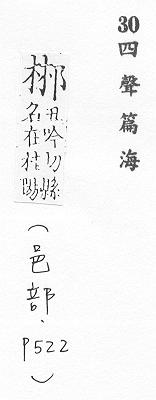 30 四聲篇海
丑吟切縣
名在桂陽
(邑部、P522)